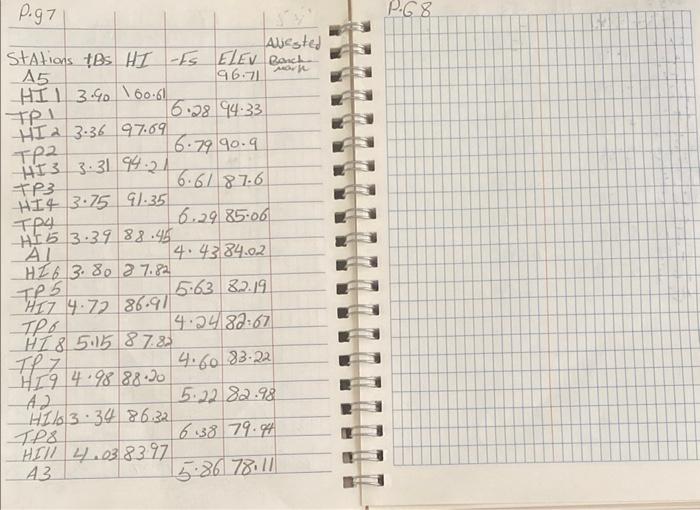 P.g 7
Stations +Bs HI -Fs ELEV Adjusted Bench mark
A5 96.71
HI 1 3.90 100.61
TP1 6.28 94.33
HI 2 3.36 97.69
TP2 6.79 90.9
HI3 3.31 94.21
TP3 6.61 87.6
HI4 3.75 91.35
TP4 6.29 85.06
HI5 3.39 88.45
A1 4.43 84.02
HI6 3.80 87.82
TP5 5.63 82.19
HI7 4.72 86.91
TP6 4.24 82.67
HI8 5.15 87.82
TP7 4.60 83.22
HI9 4.98 88.20
A2 5.22 82.98
HI10 3.34 86.32
TP8 6.38 79.94
HI11 4.03 8397
A3 5.86 78.11
P.G 8